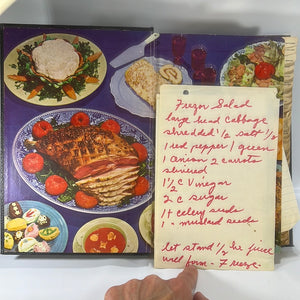 Frezor Salad
large head Cabbage
shredded 1/2 salt
1 red pepper 1 green
1 onion 2 carots
slivered
1 1/2 C Vinegar
2 C sugar
1 t celery seeds
" mustard seeds
let stand 1/2 hr juice
will form - Freeze.